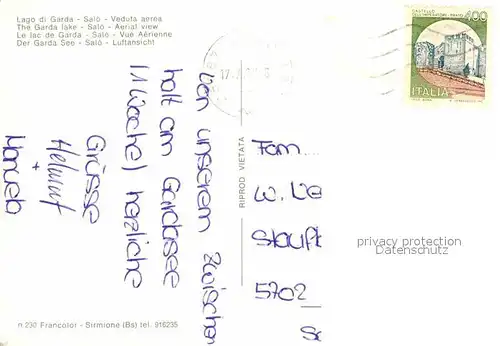 Lago di Garda - Salò - Veduta aerea
The Garda lake - Salò - Aerial view
Le lac de Garda - Salò - Vue Aérienne
Der Garda See - Salò - Luftansicht
CASTELLO
DELL'IMPERATORE - PRATO
400
ITALIA
von unserem Zwischen
halt am Gardasee
(1 Woche) herzliche
Grüsse
Helmut
+
RIPROD VIETATA
Fam....
W. Ue
Stauff
5702
privacy protection
Datenschutz
n. 230 Francolor - Sirmione (Bs) tel. 916235